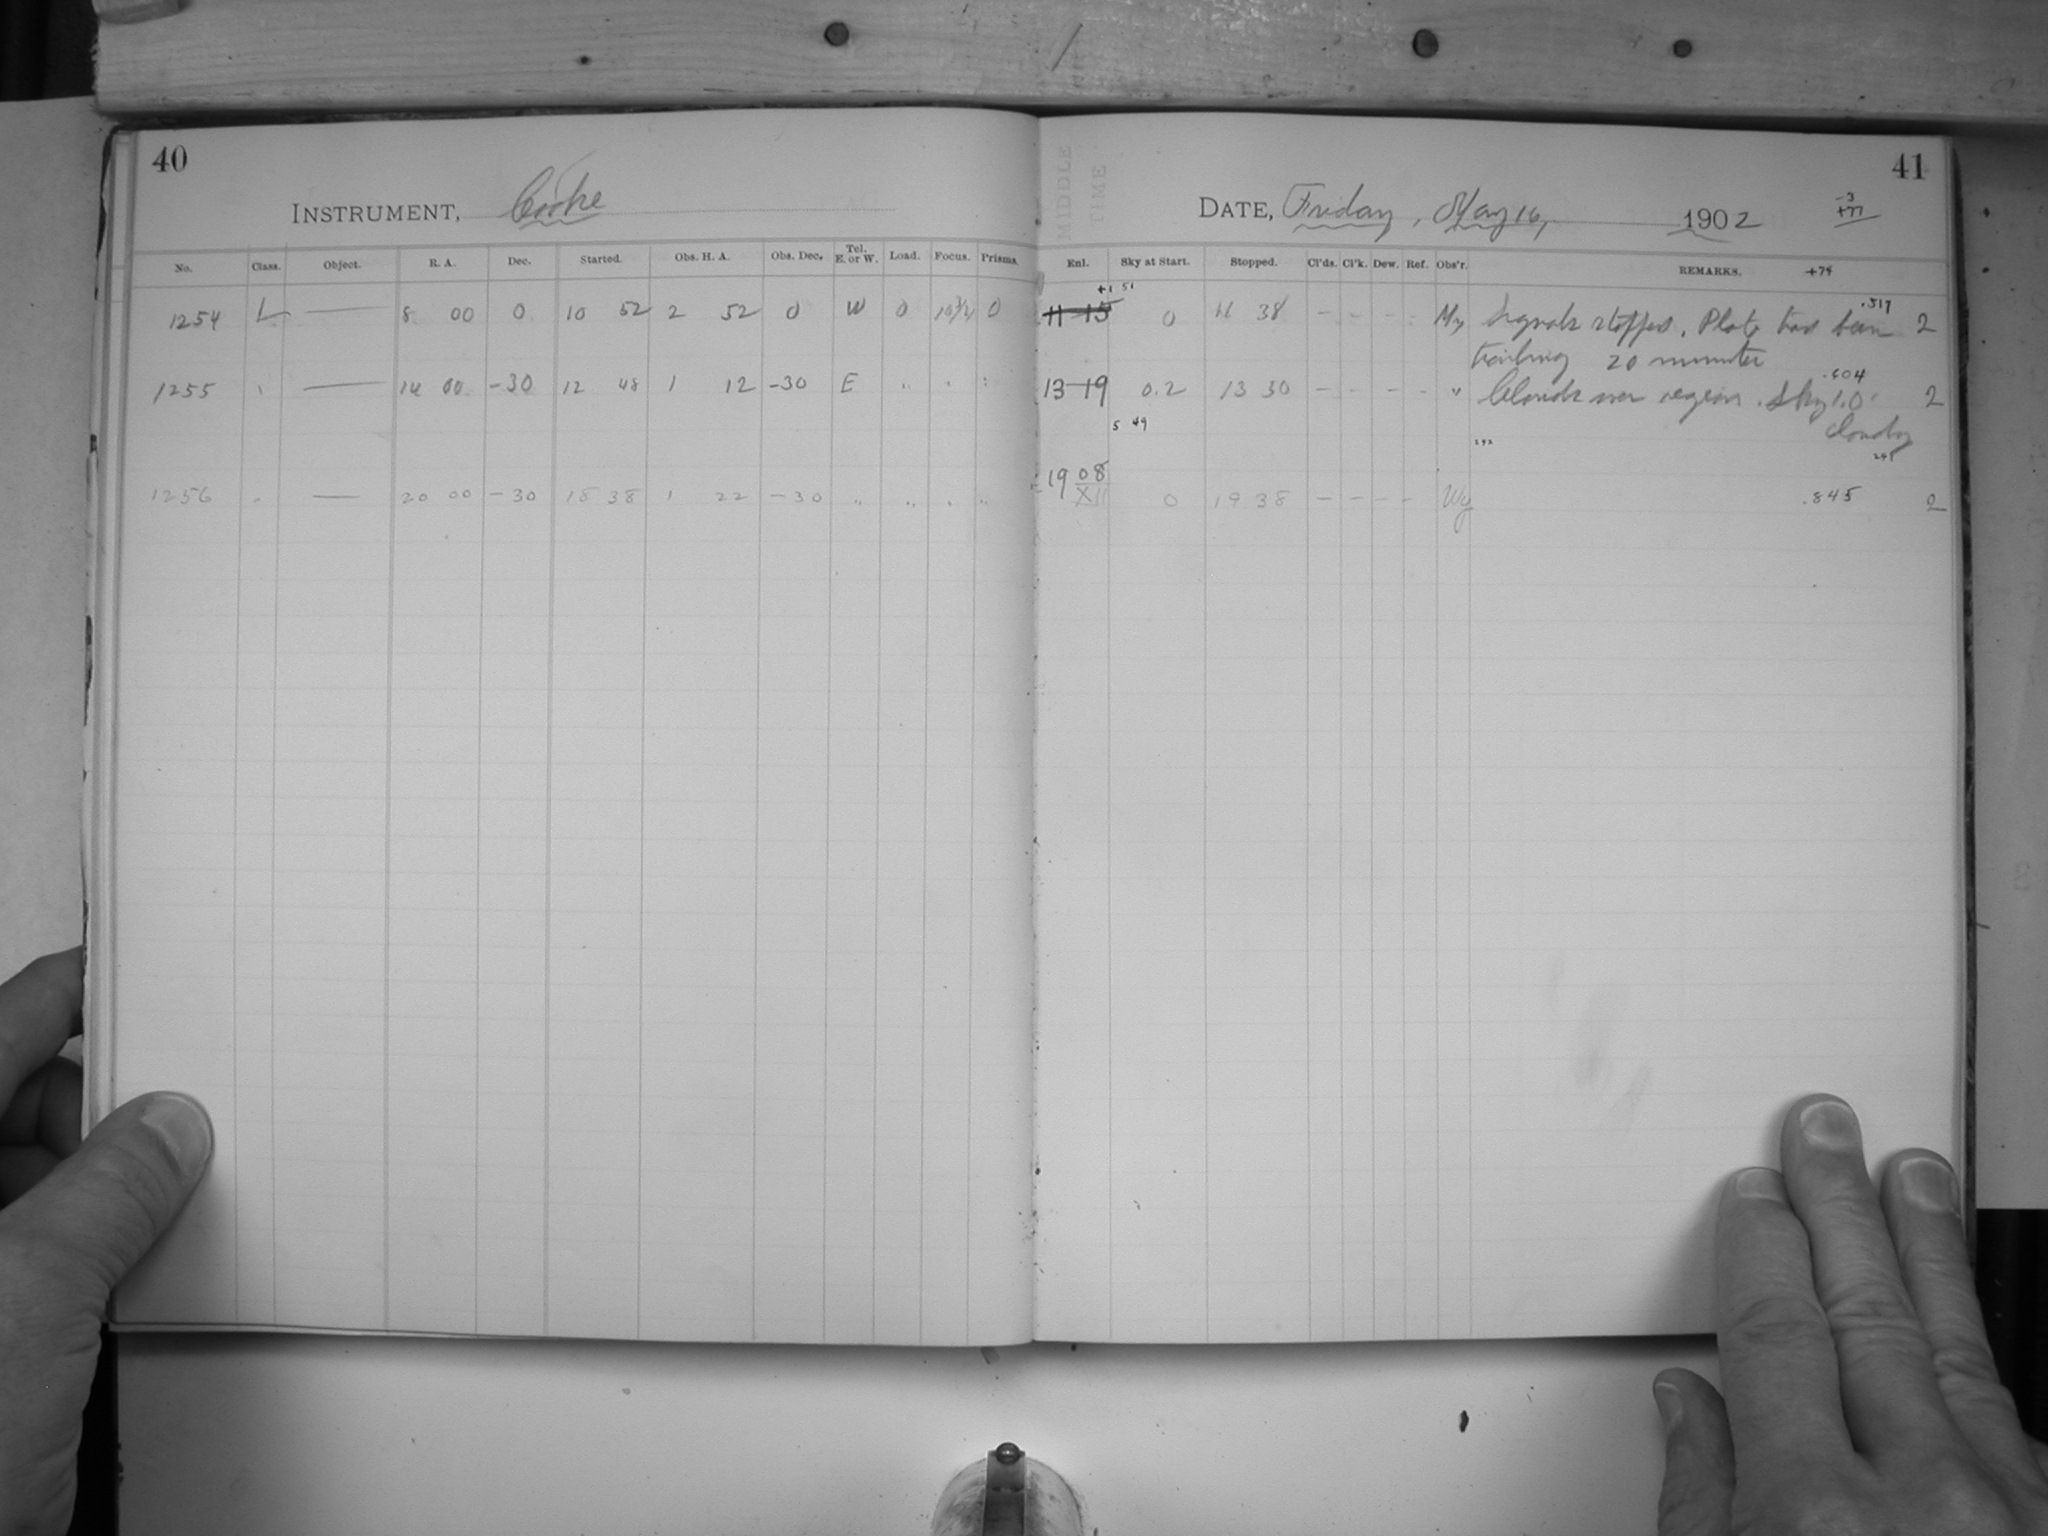 40
INSTRUMENT, Cooke
No. Class. Object. R. A. Dec. Started. Obs. H. A. Obs. Dec. Tel. E. or W. Load. Focus. Prisms.
1254 L — 8 00 0 10 52 2 52 0 W 0 10 3/4 0
1255 " — 14 00 -30 12 48 1 12 -30 E " " "
1256 " — 20 00 -30 18 38 1 22 -30 " " " "
MIDDLE
TIME
41
DATE, Friday, May 16, 1902
-3
+77
Enl. Sky at Start. Stopped. Cl'ds. Cl'k. Dew. Ref. Obs'r. REMARKS. +74
+1 51
11 15 0 11 38 - - - - My Signals stopped. Plate has been .519 2
trailing 20 minutes
13 19 0.2 13 30 - - - - " Clouds over region. Sky 1.0 .604 2
cloudy
5 49
242
241
19 08
XII 0 19 38 - - - - Wy .845 2